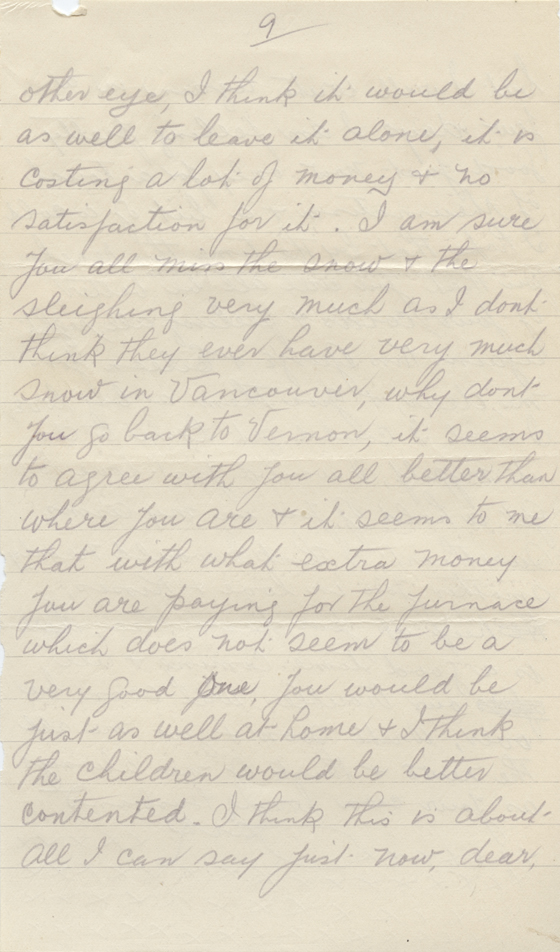 9
other eye, I think it would be
as well to leave it alone, it is
costing a lot of money & no
satisfaction for it. I am sure
you all miss the snow & the
sleighing very much as I dont
think they ever have very much
snow in Vancouver, why dont
you go back to Vernon, it seems
to agree with you all better than
where you are & it seems to me
that with what extra money
you are paying for the furnace
which does not seem to be a
very good one, you would be
just as well at home & I think
the children would be better
contented. I think this is about
all I can say just now, dear,